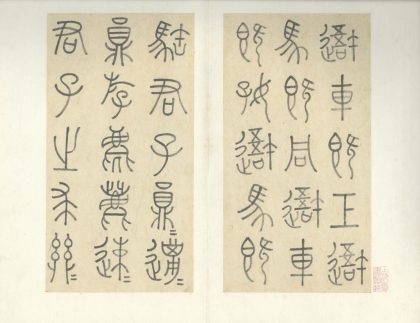 吾車既工吾
馬既同吾車
既好吾馬既
𩣡君子員=邋=
員斿麀鹿速=
君子之求